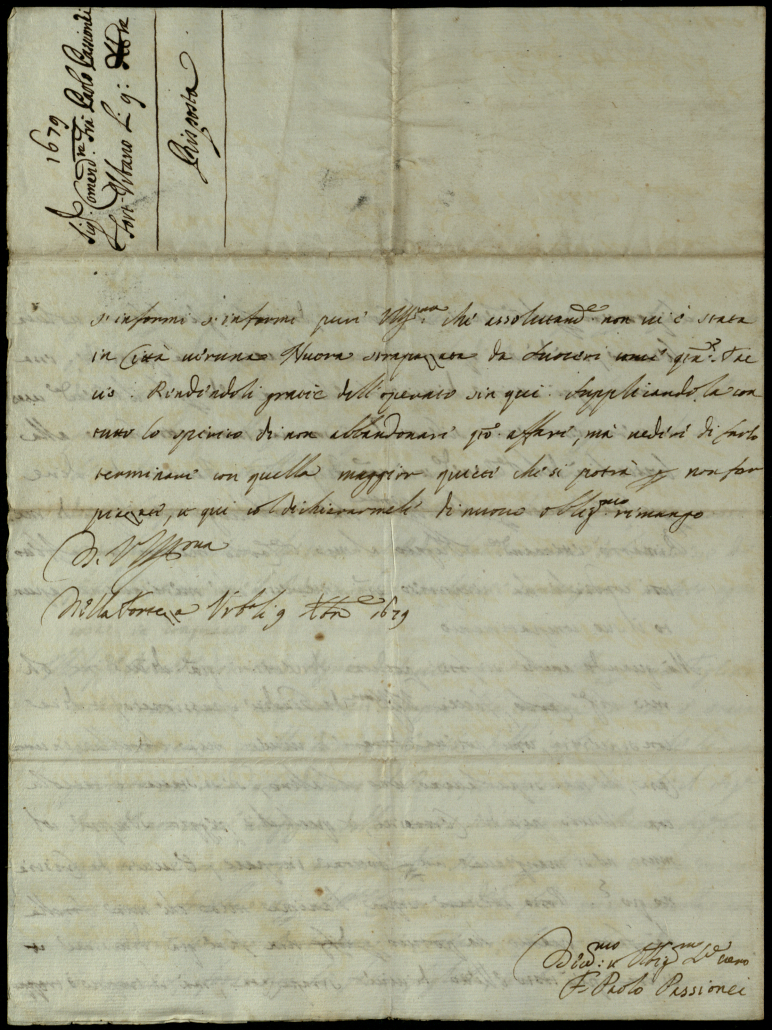 1679
Sig.r Comend.re Frà Paolo Passionei
Fort' Urbano li 9: Xbre
Risposta
S'informi s'informi pure V.S. Ill.ma che assolutam.e non vi è stata
in Città veruna Nuova strapazzata da
Rendendoli gratie dell'operato sin qui. Supplicandola con
tutto lo spirito di non abbandonare q.to affare, mà vedere di farlo
terminare con quella maggior quiete che si potrà p non far
, e qui col dichiararmele di nuovo oblig.mo rimango
D. V.S. Ill.ma
Della Fortezza Urb.a li 9 Xbre 1679
Div.mo e Oblig.mo Ser.e vero
F. Paolo Passionei